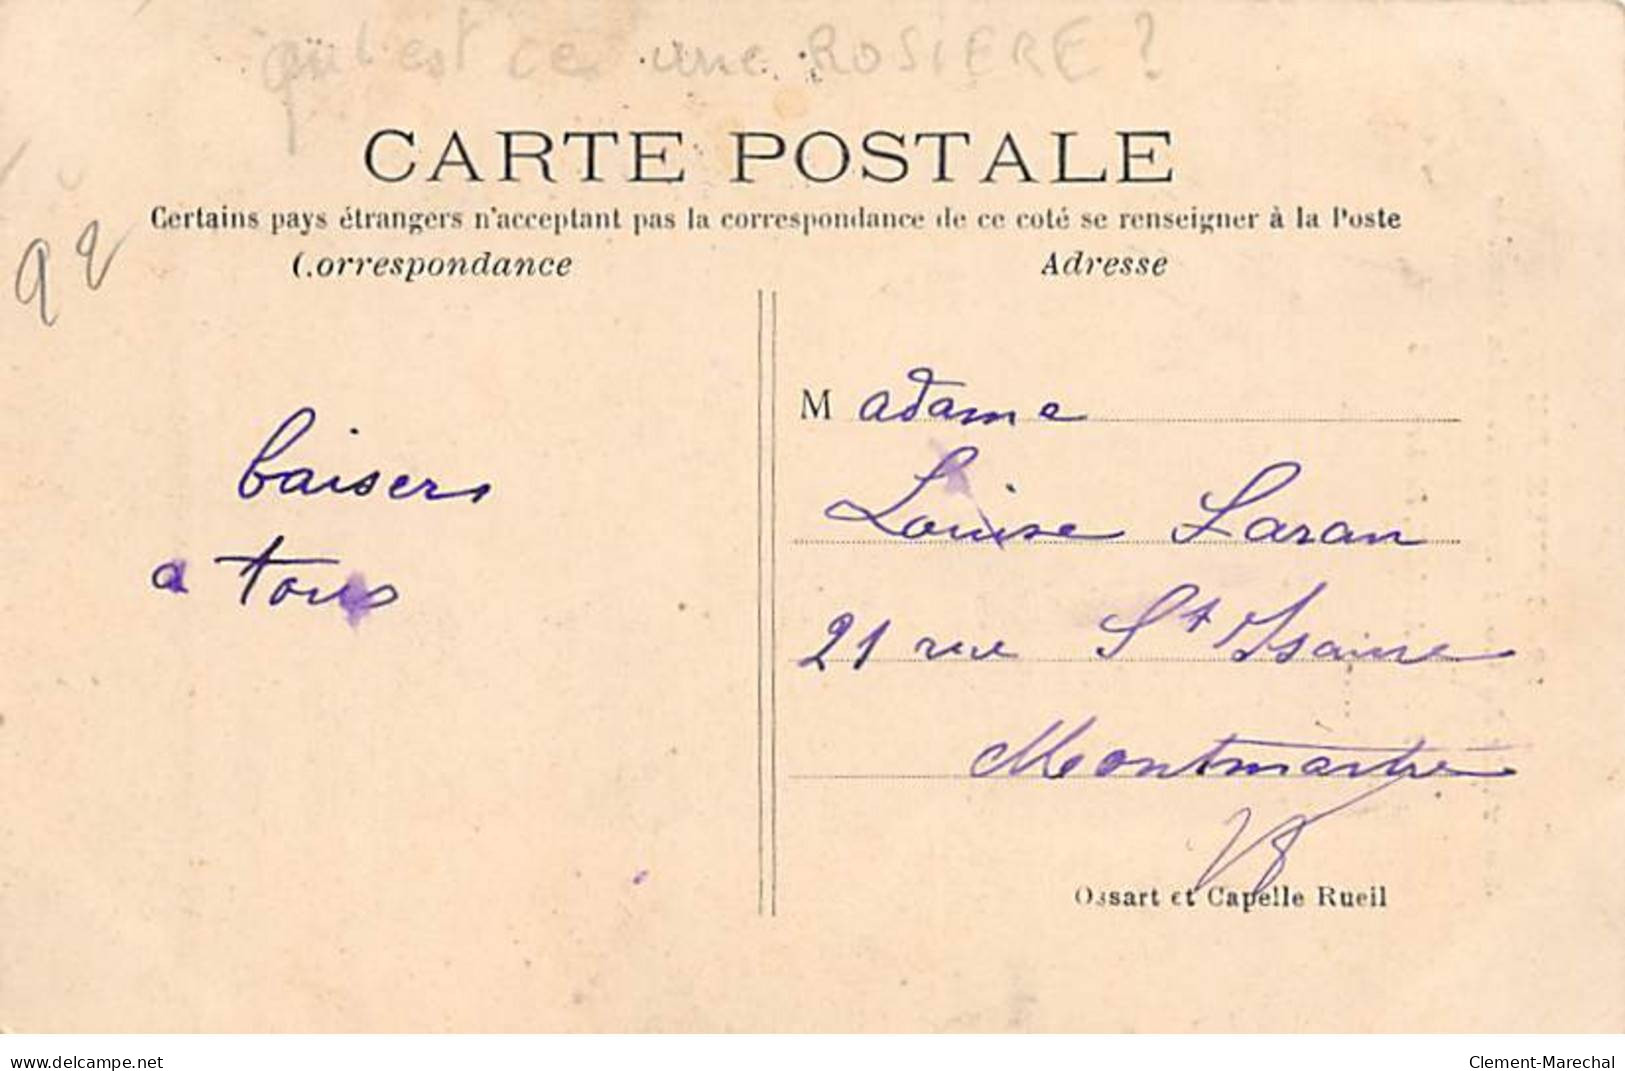 qu'est ce une ROSIERE ?
CARTE POSTALE
Certains pays étrangers n'acceptant pas la correspondance de ce coté se renseigner à la Poste
Correspondance
Adresse
92
baisers
a tous
Madame
Louise Laran
21 rue St Isaure
Montmartre
18
Ossart et Capelle Rueil
www.delcampe.net
Clement-Marechal